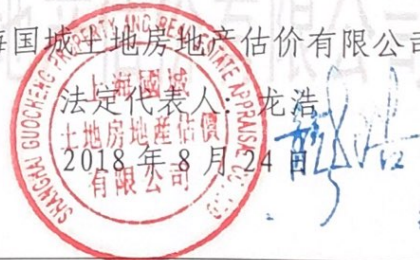 海国城土地房地产估价有限公司
法定代表人：龙浩
2018年8月24日
SHANGHAI GUOCHENG PROPERTY AND REAL ESTATE APPRAISAL CO LTD
上海國城
土地房地産估價
有限公司